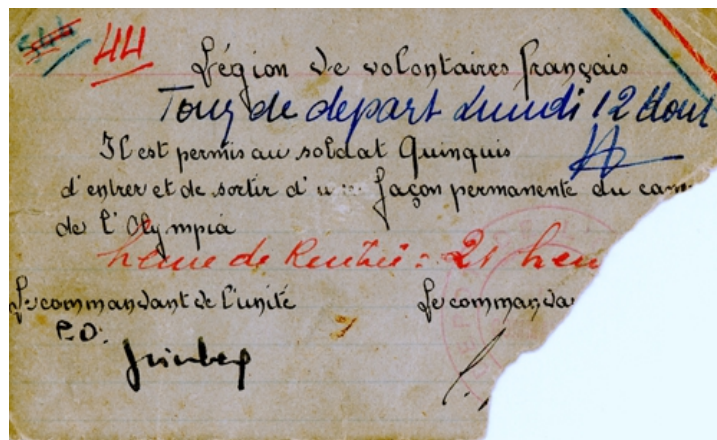 44
Légion de volontaires français
Tour de depart Lundi 12 Aout
Il est permis au soldat Quinquis
d'entrer et de sortir d'une façon permanente du cam
de l'Olympia
heure de Rentrée : 21 heu
Le commandant de l'unité Le commanda
P.O.